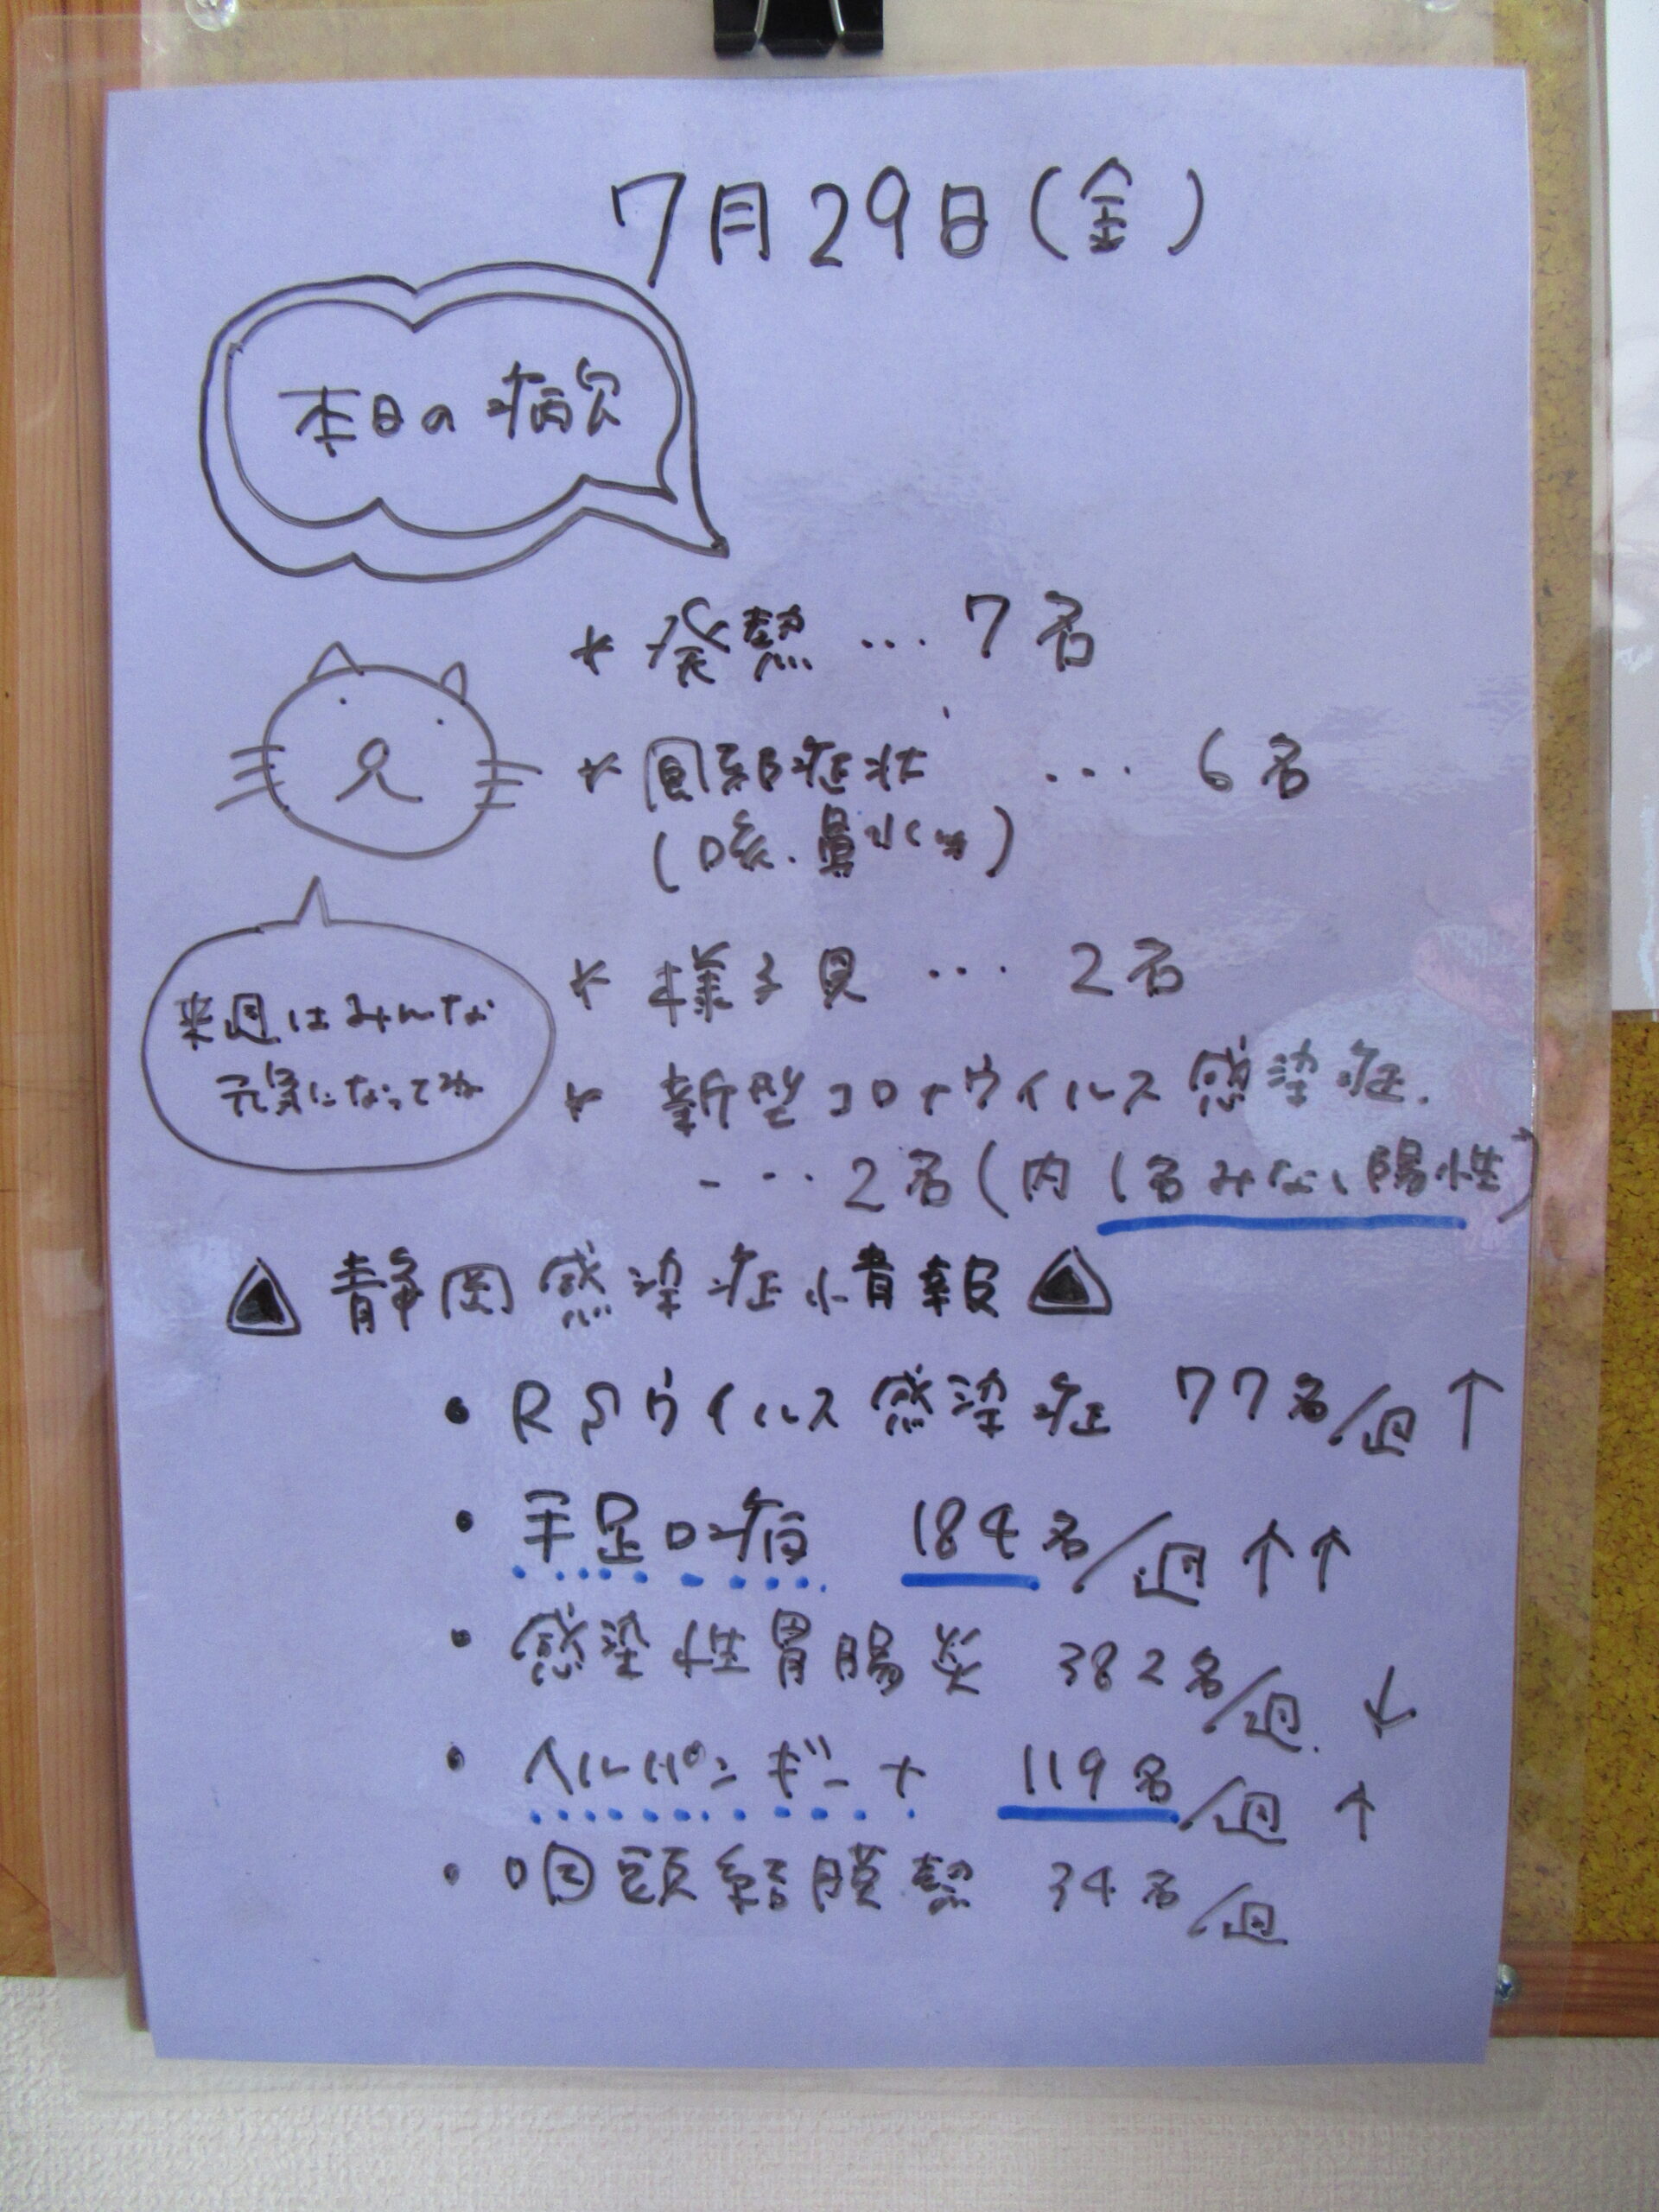 7月29日(金)
本日の病欠
* 発熱 … 7名
* 風邪症状 … 6名
(咳.鼻水等)
* 様子見 … 2名
来週はみんな
元気になってね
* 新型コロナウイルス感染症.
… 2名(内1名みなし陽性)
▲静岡感染症情報▲
・RSウイルス感染症 77名/週 ↑
・手足口病 184名/週 ↑↑
・感染性胃腸炎 382名/週. ↓
・ヘルパンギーナ 119名/週 ↑
・咽頭結膜熱 34名/週